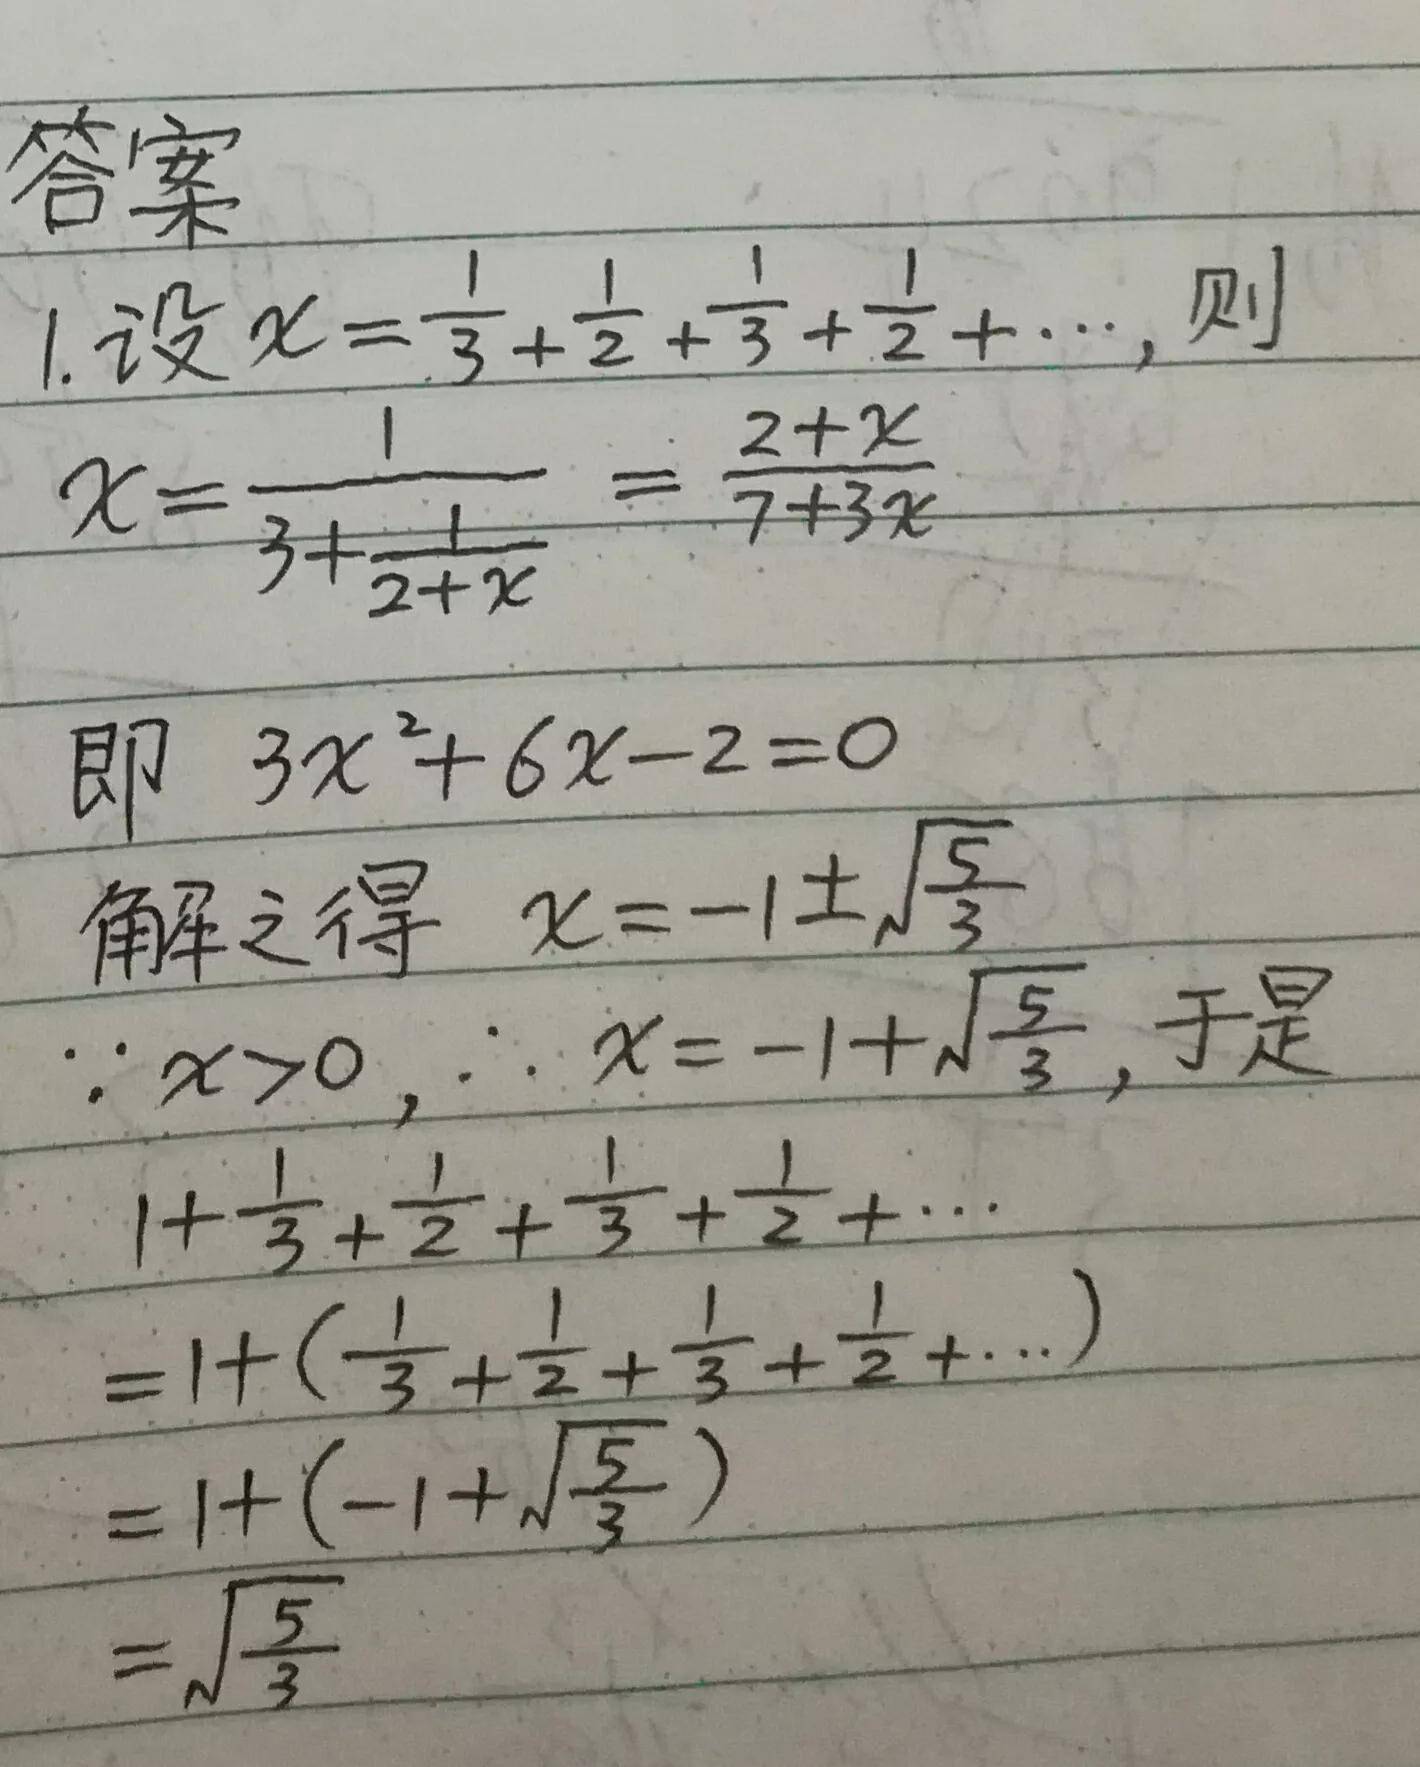 答案
1. 设 x = 1/3 + 1/2 + 1/3 + 1/2 + ⋯, 则
x = 1/(3 + 1/(2+x)) = (2+x)/(7+3x)
即 3x² + 6x - 2 = 0
解之得 x = -1 ± √(5/3)
∵ x > 0, ∴ x = -1 + √(5/3), 于是
1 + 1/3 + 1/2 + 1/3 + 1/2 + ⋯
= 1 + (1/3 + 1/2 + 1/3 + 1/2 + ⋯)
= 1 + (-1 + √(5/3))
= √(5/3)